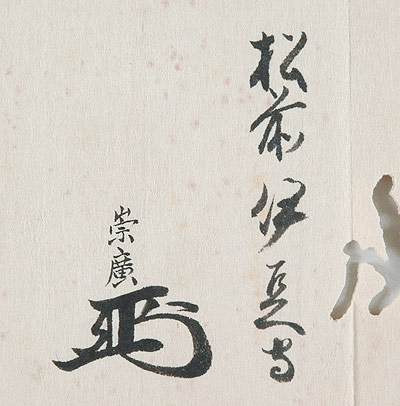 松前伊豆守
崇廣